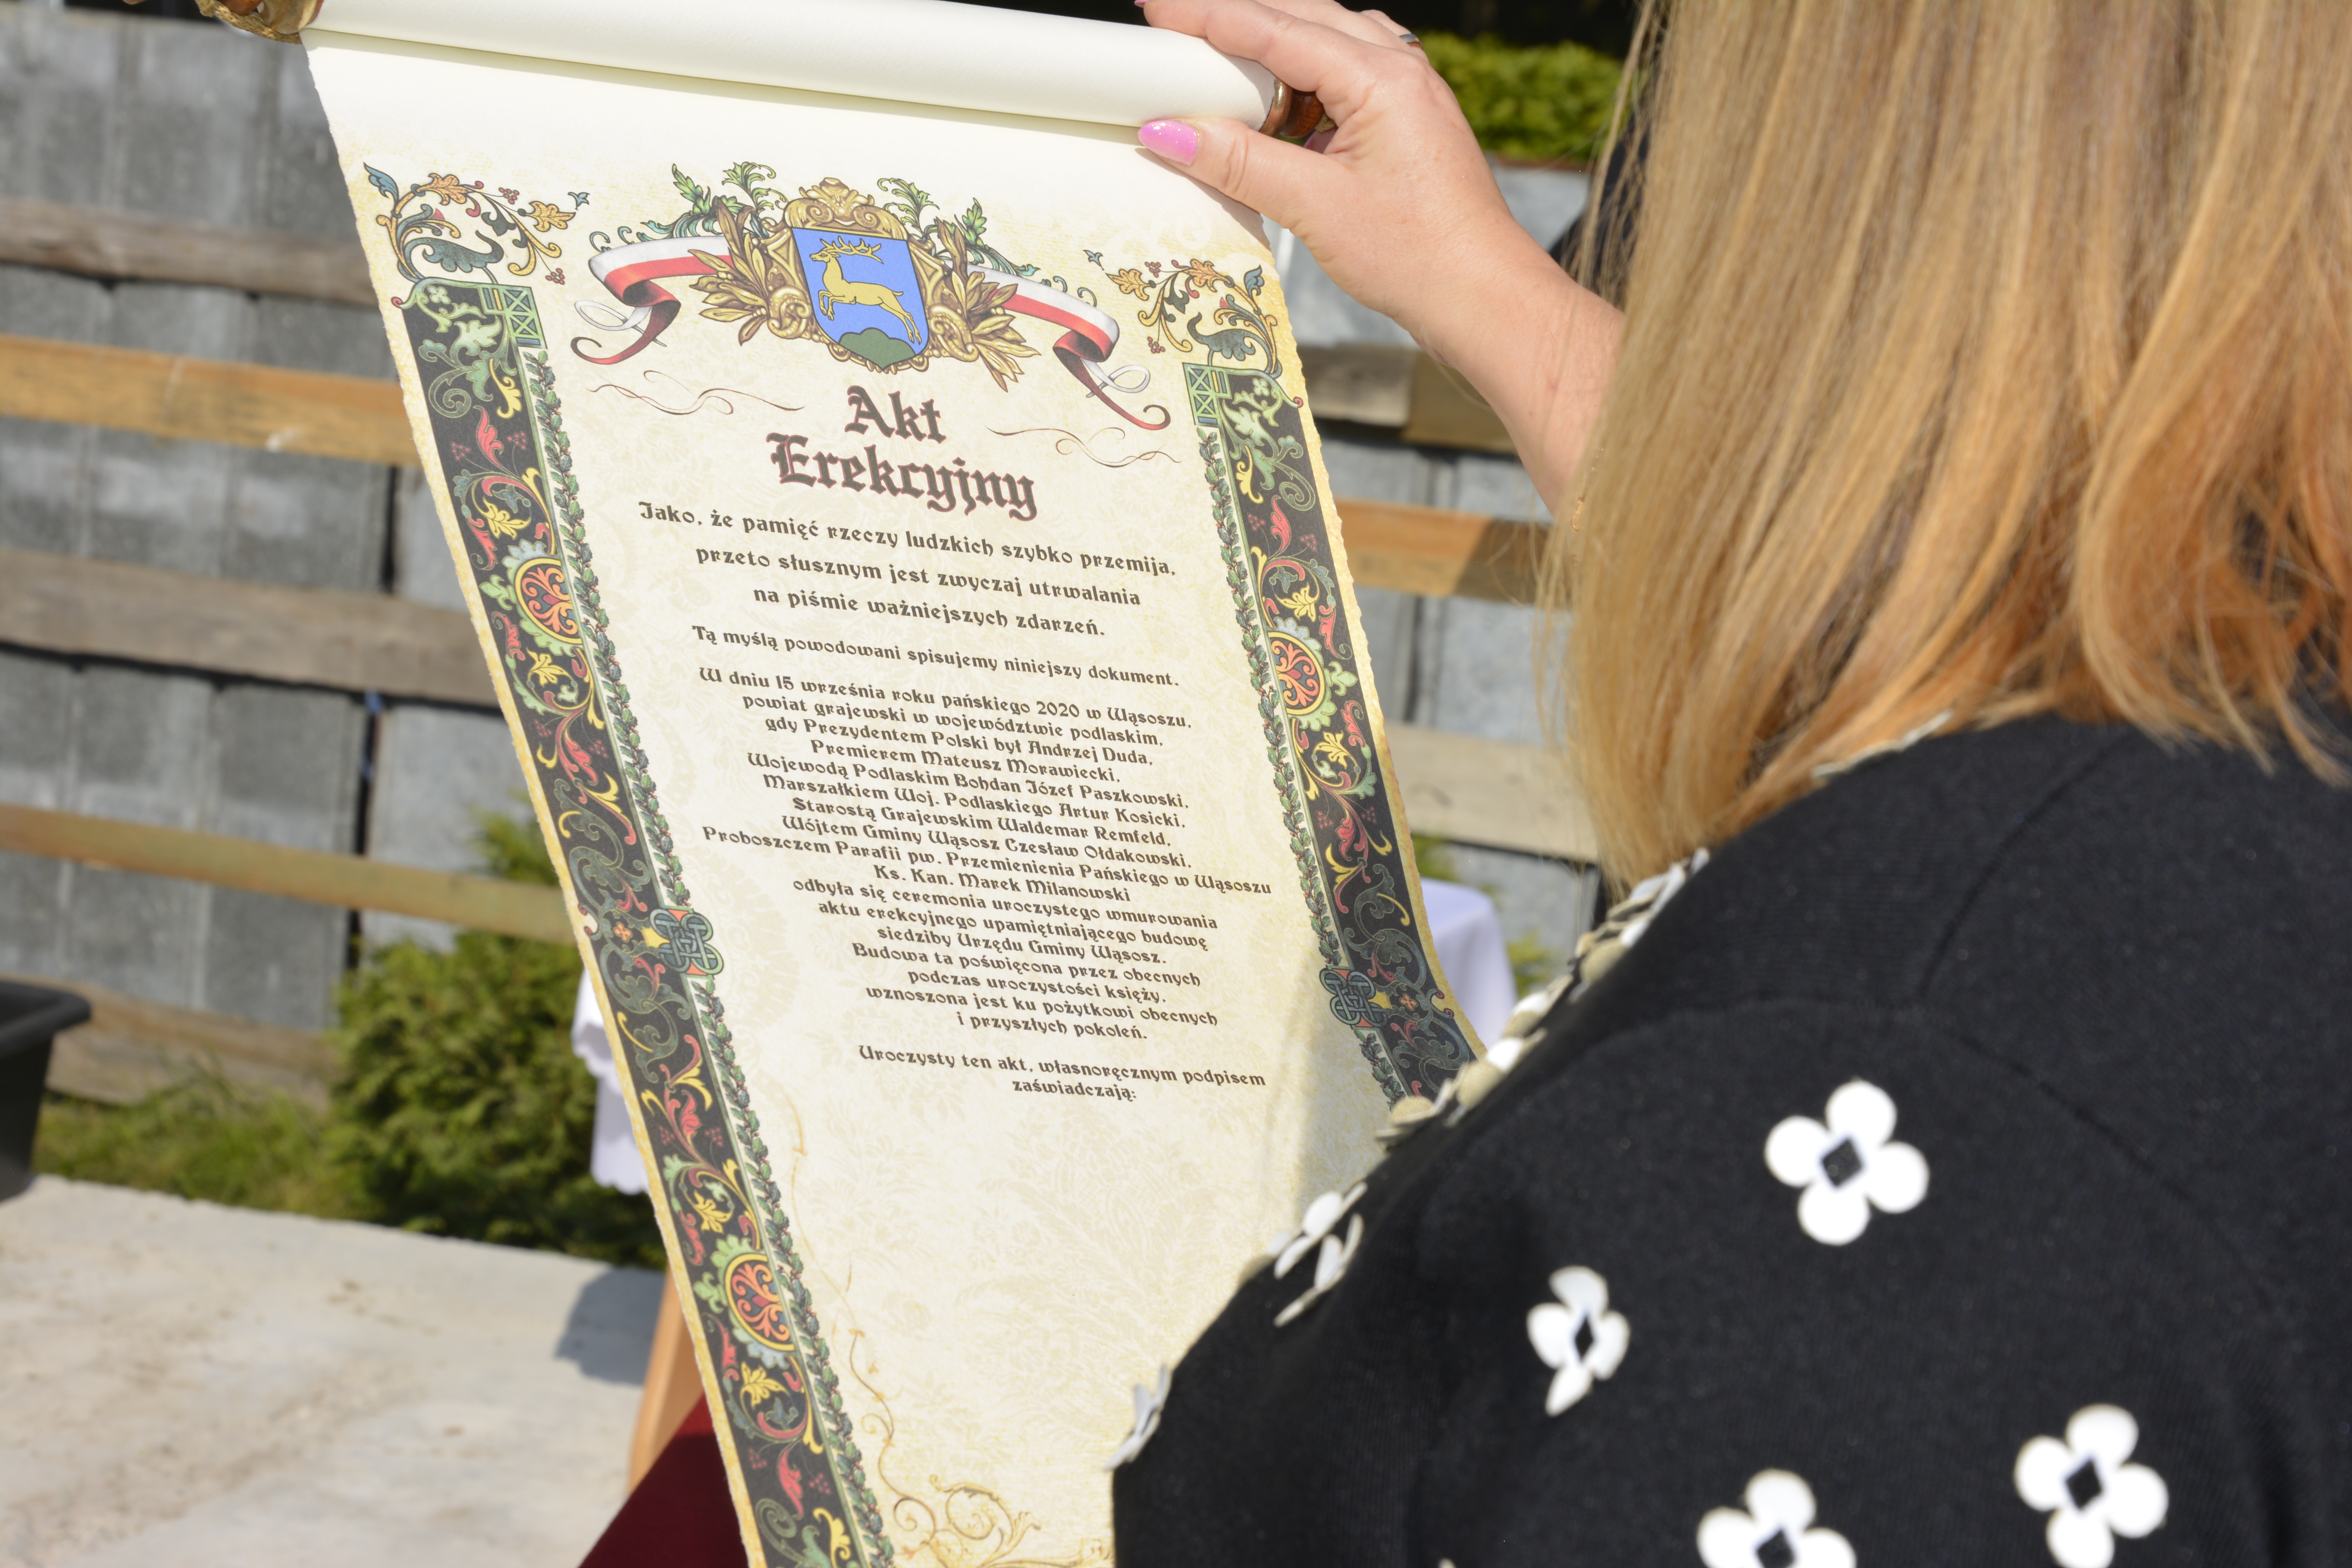 Akt
Erekcyjny
Jako, że pamięć rzeczy ludzkich szybko przemija,
przeto słusznym jest zwyczaj utrwalania
na piśmie ważniejszych zdarzeń.
Tą myślą powodowani spisujemy niniejszy dokument.
W dniu 15 września roku pańskiego 2020 w Wąsoszu,
powiat grajewski w województwie podlaskim,
gdy Prezydentem Polski był Andrzej Duda,
Premierem Mateusz Morawiecki,
Wojewodą Podlaskim Bohdan Józef Paszkowski,
Marszałkiem Woj. Podlaskiego Artur Kosicki,
Starostą Grajewskim Waldemar Remfeld,
Wójtem Gminy Wąsosz Czesław Ołdakowski,
Proboszczem Parafii pw. Przemienienia Pańskiego w Wąsoszu
Ks. Kan. Marek Milanowski
odbyła się ceremonia uroczystego wmurowania
aktu erekcyjnego upamiętniającego budowę
siedziby Urzędu Gminy Wąsosz.
Budowa ta poświęcona przez obecnych
podczas uroczystości księży,
wznoszona jest ku pożytkowi obecnych
i przyszłych pokoleń.
Uroczysty ten akt, własnoręcznym podpisem
zaświadczają: